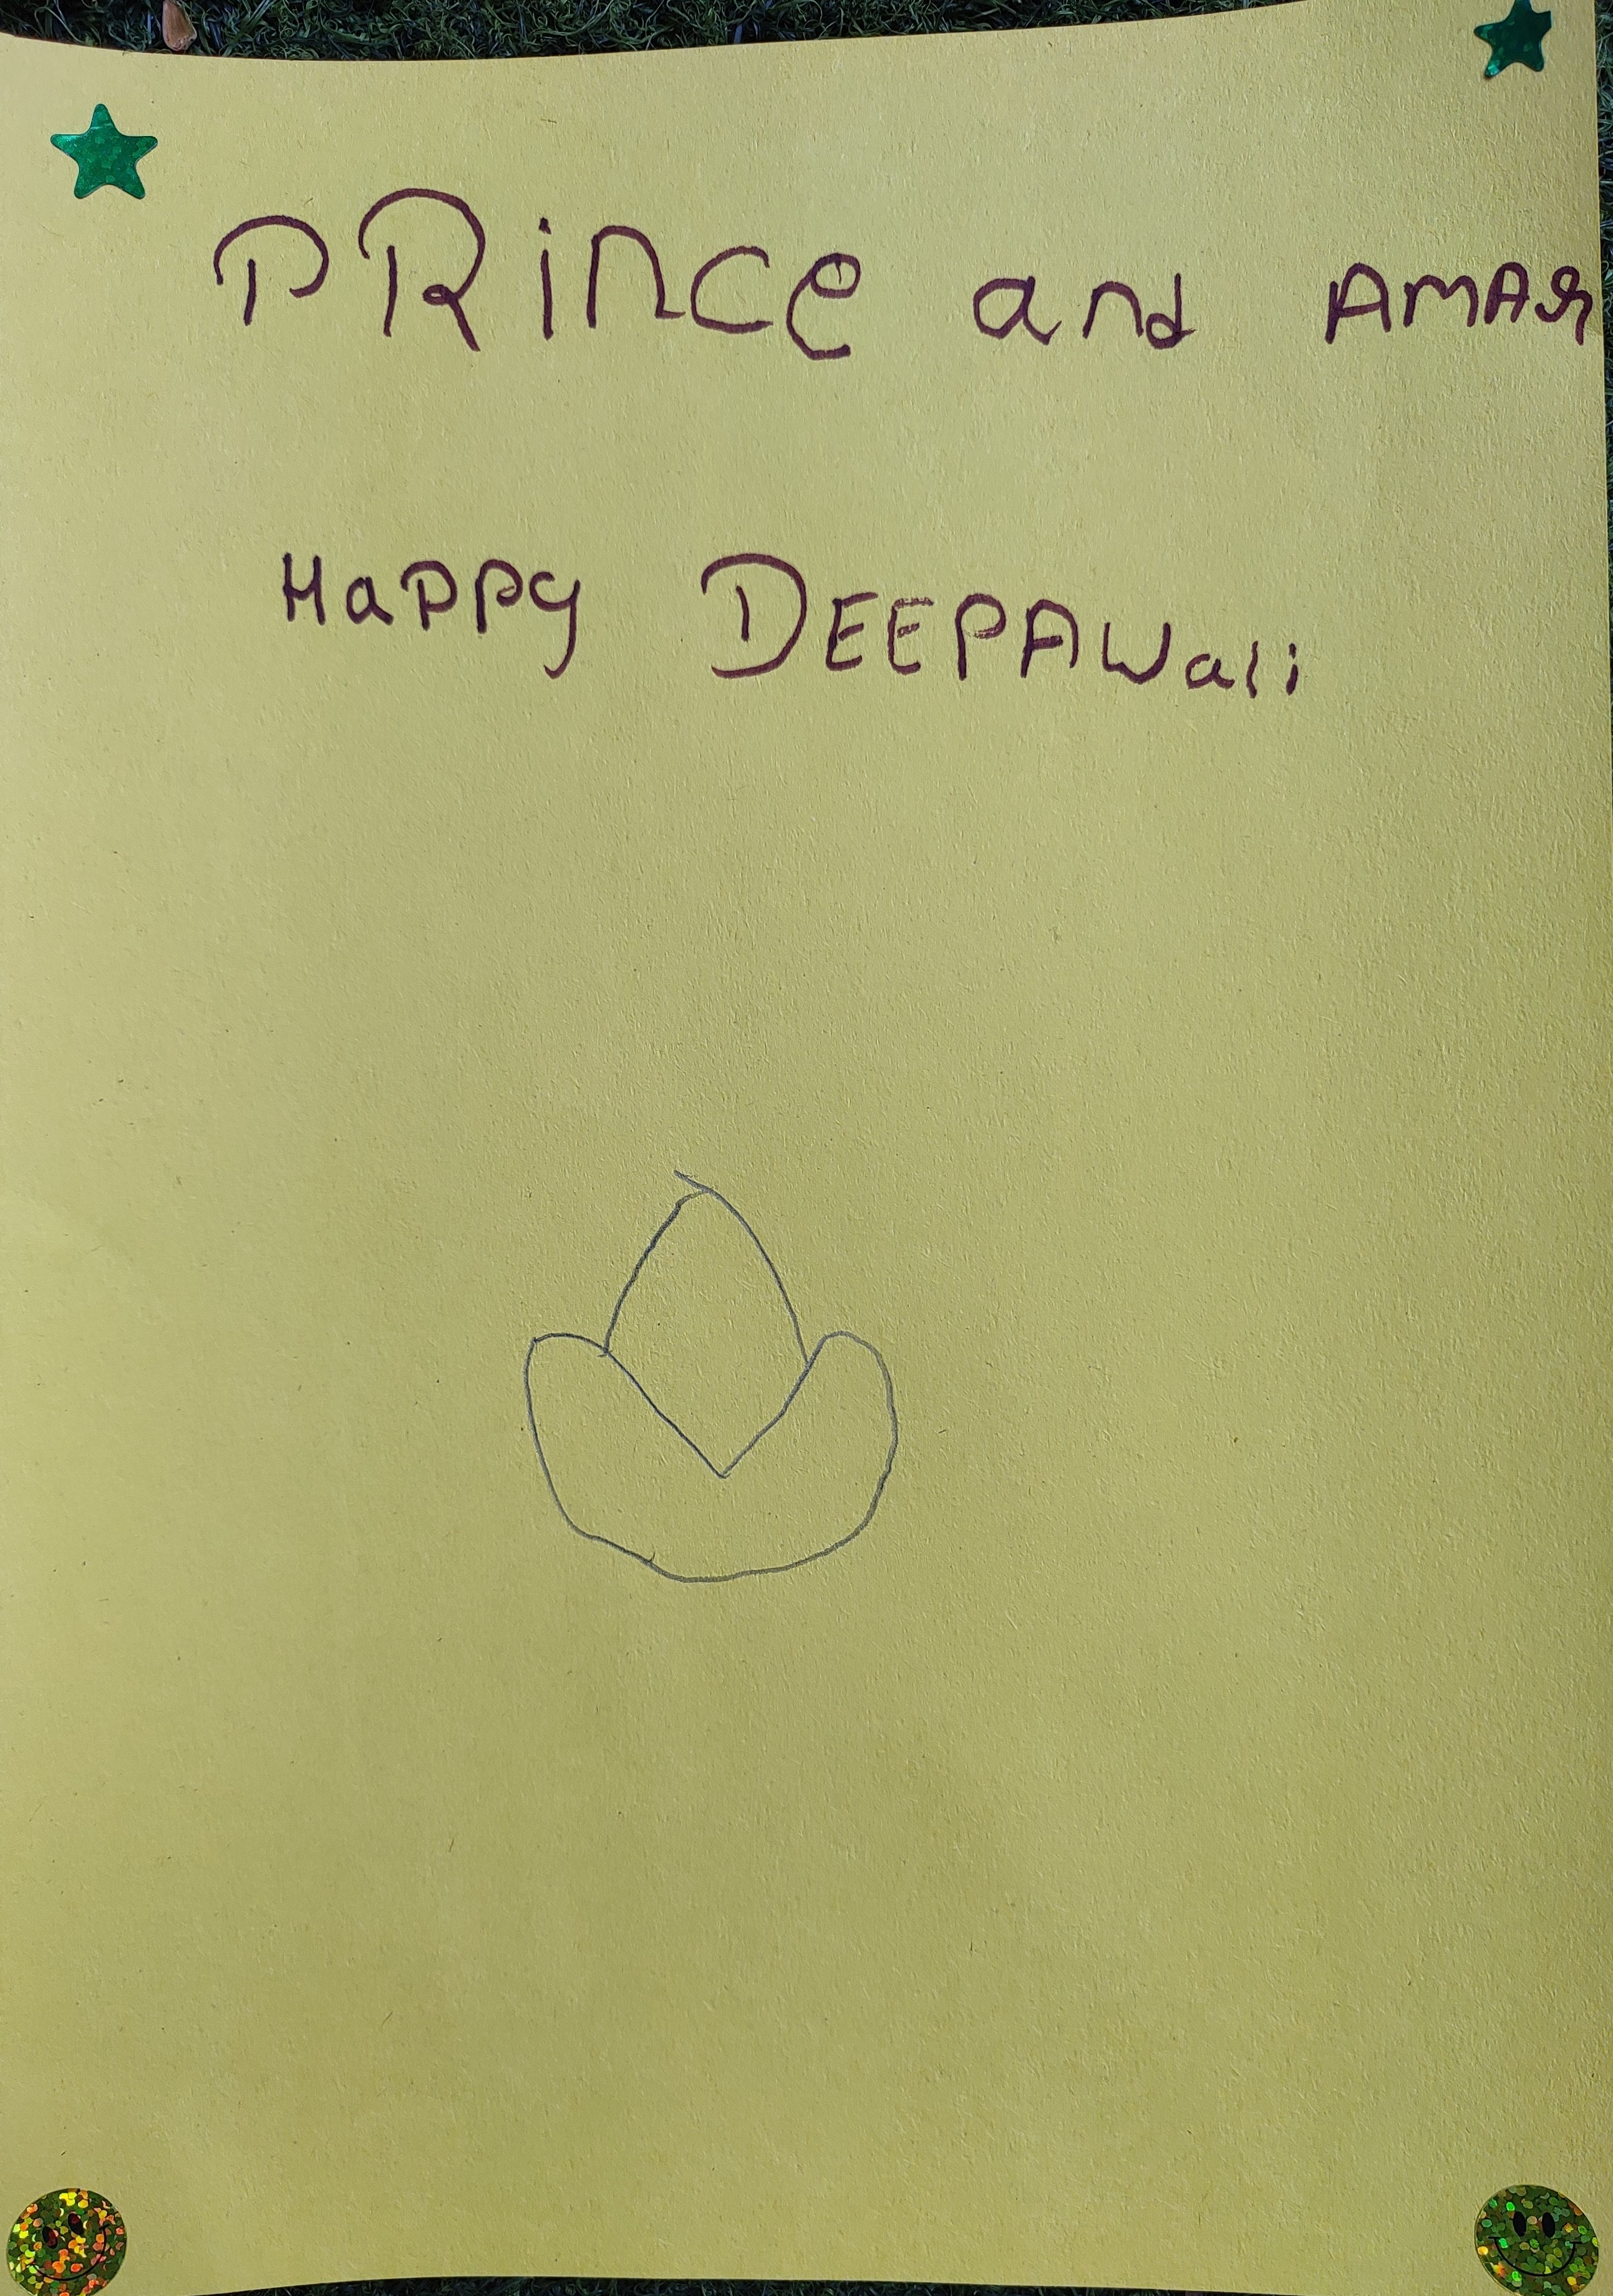 PRince and AMAR
HaPPy DEEPAWali